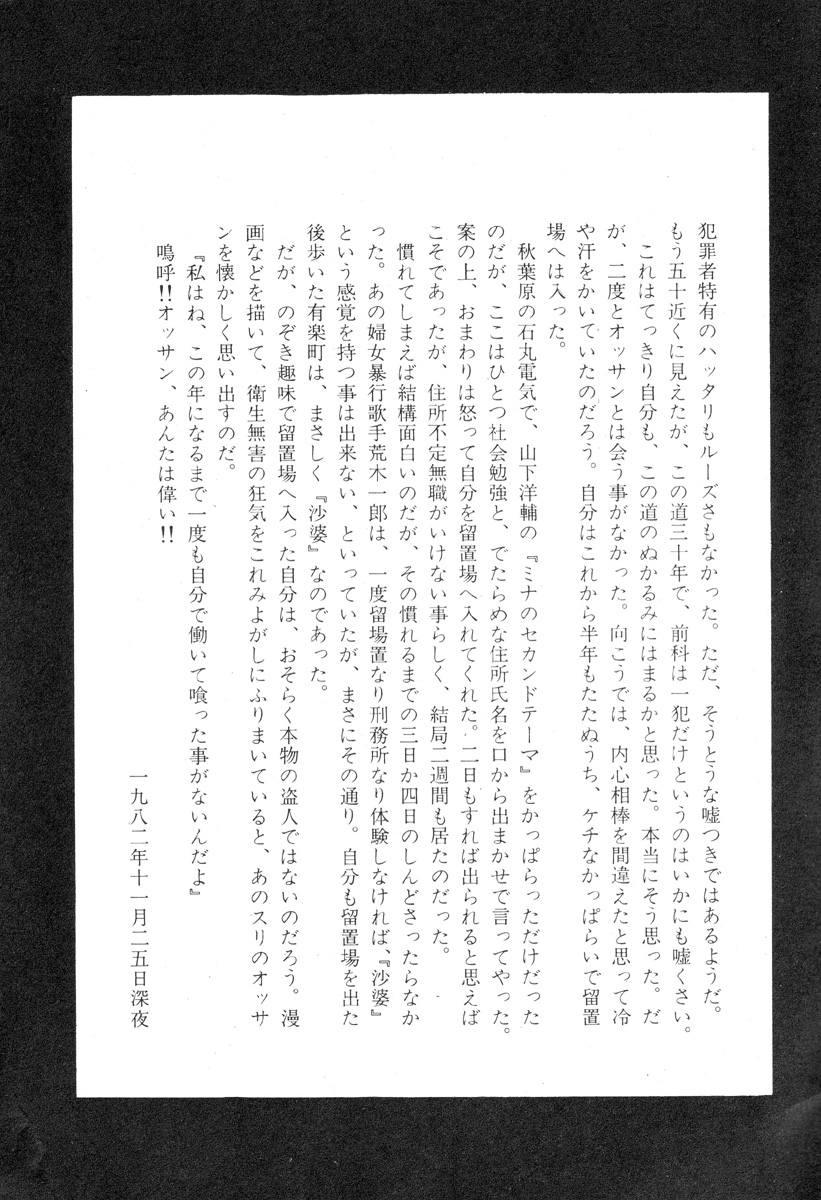 犯罪者特有のハッタリもルーズさもなかった。ただ、そうとうな嘘つきではあるようだ。
もう五十近くに見えたが、この道三十年で、前科は一犯だけというのはいかにも嘘くさい。
これはてっきり自分も、この道のぬかるみにはまるかと思った。本当にそう思った。だ
が、二度とオッサンとは会う事がなかった。向こうでは、内心相棒を間違えたと思って冷
や汗をかいていたのだろう。自分はこれから半年もたたぬうち、ケチなかっぱらいで留置
場へは入った。
秋葉原の石丸電気で、山下洋輔の『ミナのセカンドテーマ』をかっぱらっただけだった
のだが、ここはひとつ社会勉強と、でたらめな住所氏名を口から出まかせで言ってやった。
案の上、おまわりは怒って自分を留置場へ入れてくれた。二日もすれば出られると思えば
こそであったが、住所不定無職がいけない事らしく、結局二週間も居たのだった。
慣れてしまえば結構面白いのだが、その慣れるまでの三日か四日のしんどさったらなか
った。あの婦女暴行歌手荒木一郎は、一度留場置なり刑務所なり体験しなければ、『沙婆』
という感覚を持つ事は出来ない、といっていたが、まさにその通り。自分も留置場を出た
後歩いた有楽町は、まさしく『沙婆』なのであった。
だが、のぞき趣味で留置場へ入った自分は、おそらく本物の盗人ではないのだろう。漫
画などを描いて、衛生無害の狂気をこれみよがしにふりまいていると、あのスリのオッサ
ンを懐かしく思い出すのだ。
『私はね、この年になるまで一度も自分で働いて喰った事がないんだよ』
嗚呼!!オッサン、あんたは偉い!!
一九八二年十一月二五日深夜